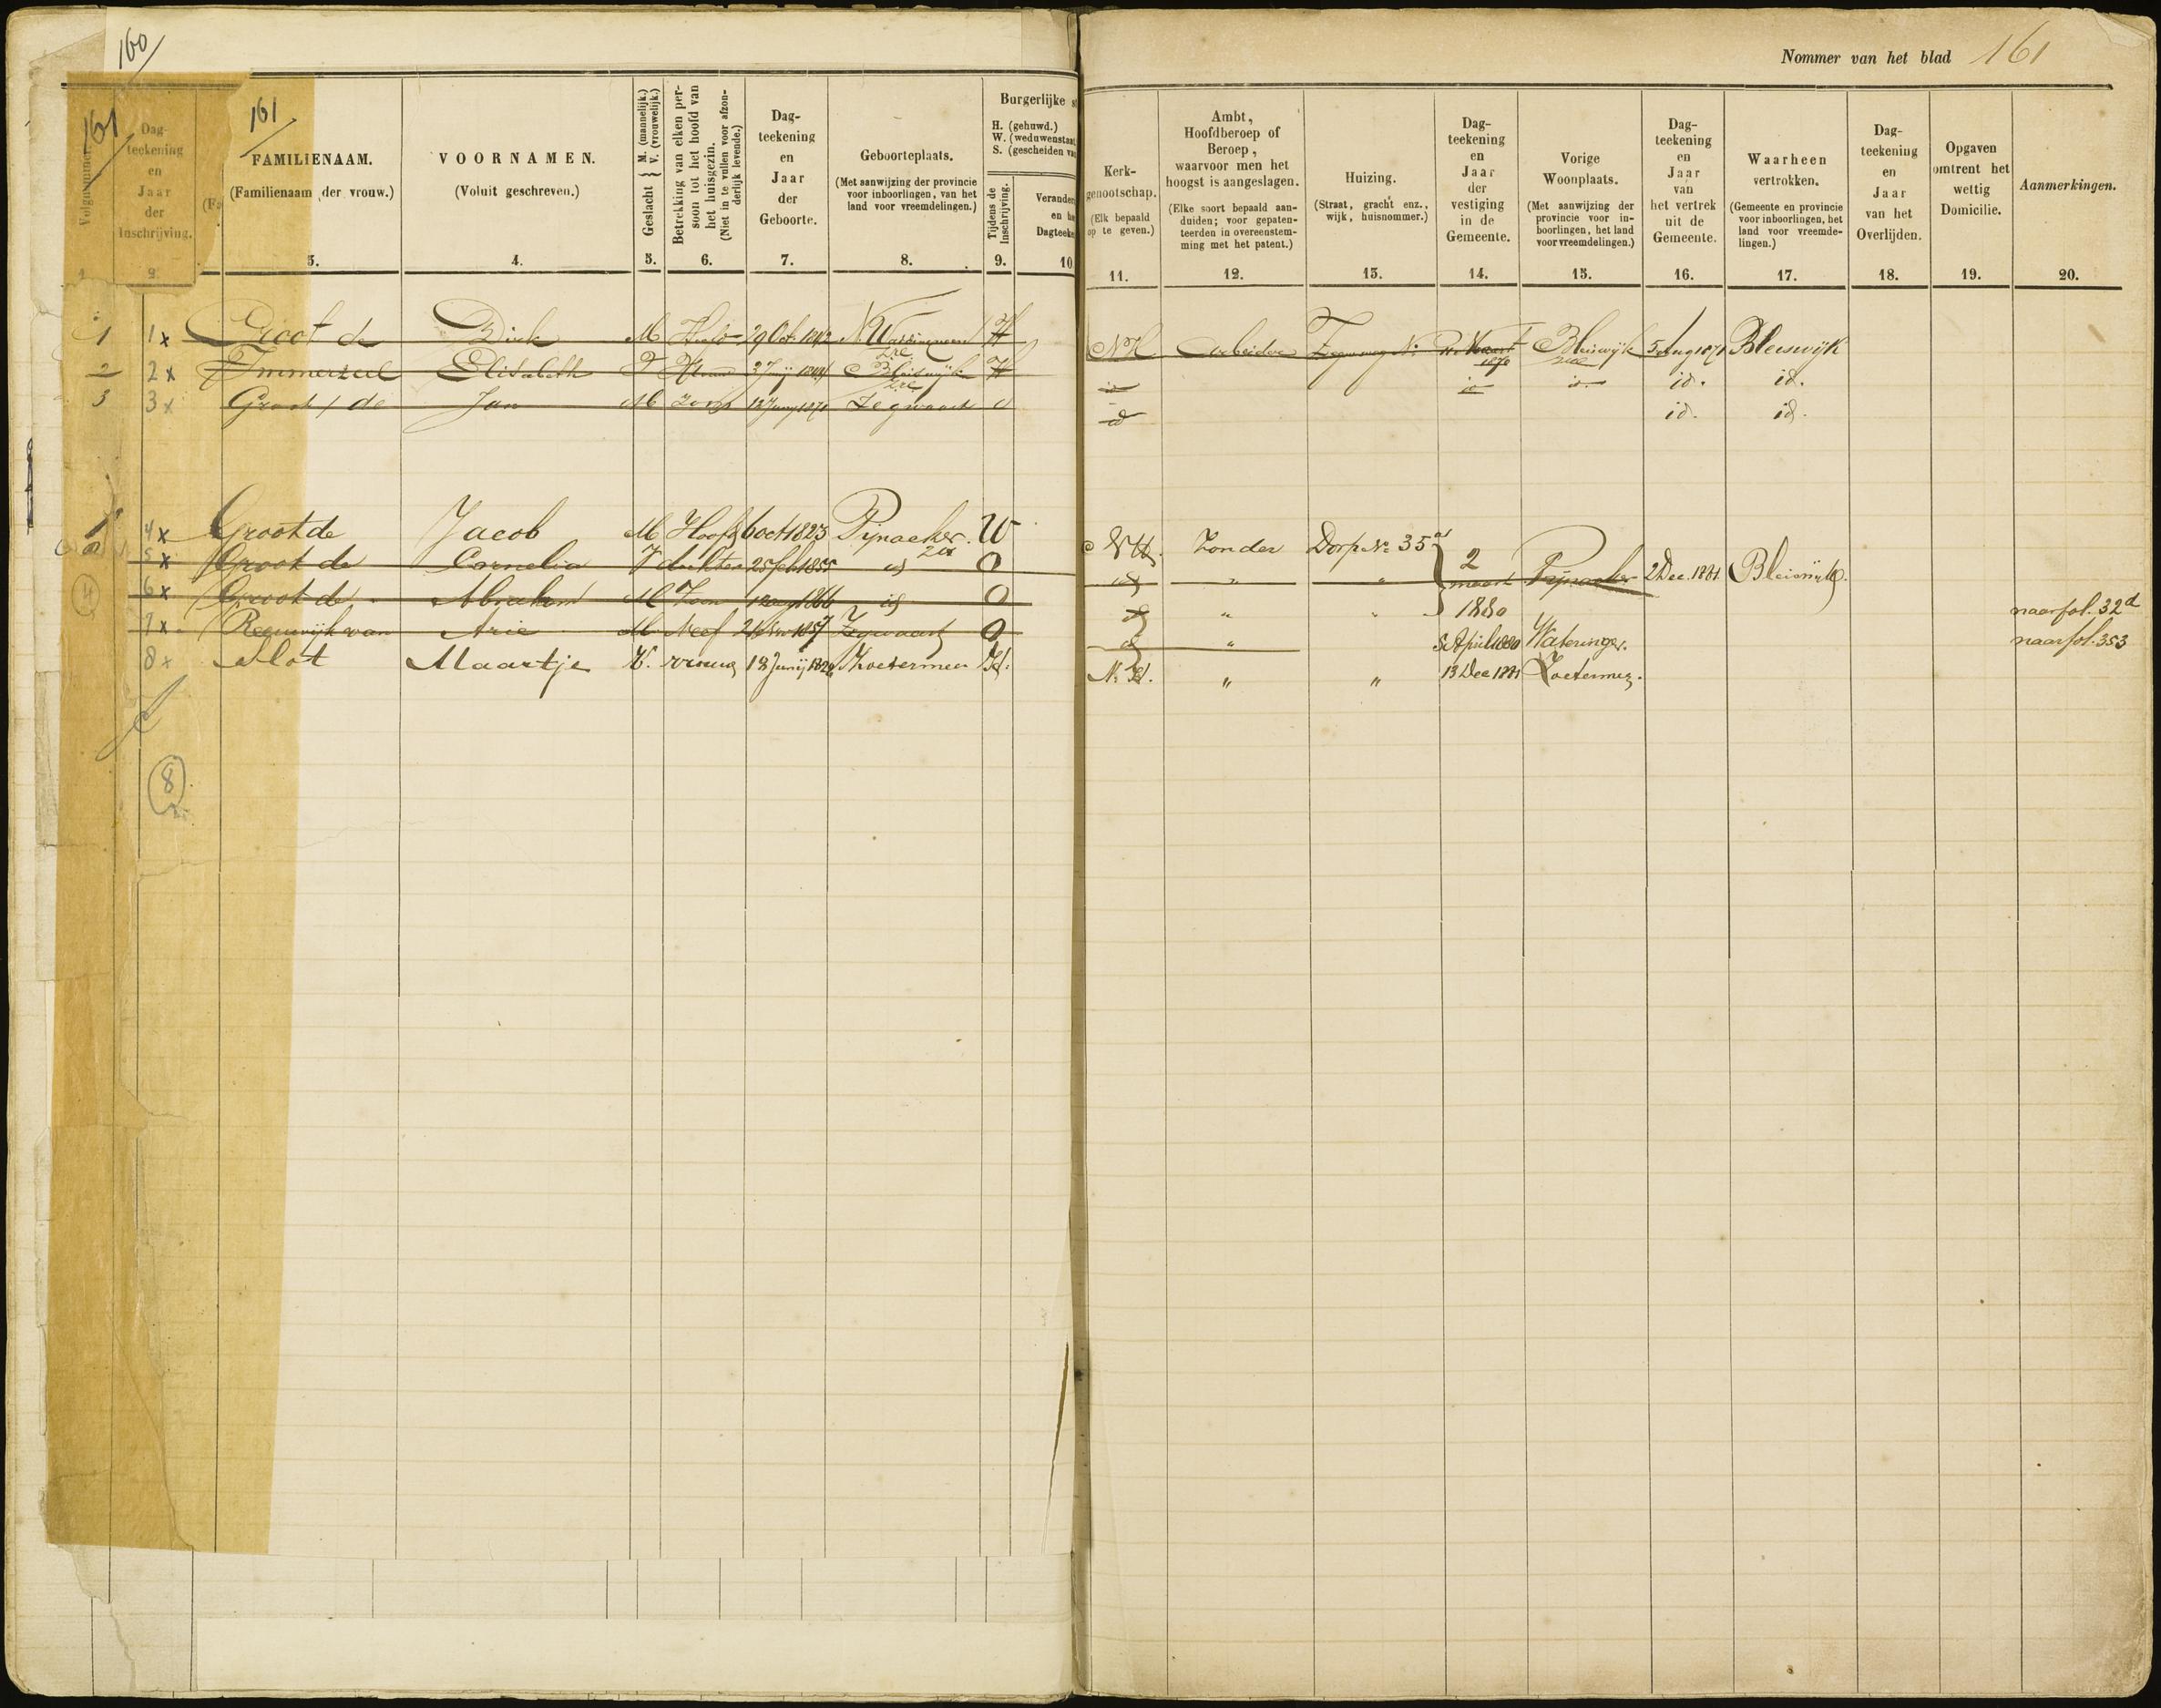 160
Nommer van het blad 161
161
161
Volgnummer.
1.
Dag-
teekening
en
Jaar
der
Inschrijving.
2.
FAMILIENAAM.
(Familienaam der vrouw.)
3.
VOORNAMEN.
(Voluit geschreven.)
4.
Geslacht { M. (mannelijk.) V. (vrouwelijk.)
5.
Betrekking van elken per-
soon tot het hoofd van
het huisgezin.
(Niet in te vullen voor afzon-
derlijk levende.)
6.
Dag-
teekening
en
Jaar
der
Geboorte.
7.
Geboorteplaats.
(Met aanwijzing der provincie
voor inboorlingen, van het
land voor vreemdelingen.)
8.
Burgerlijke s
H. (gehuwd.)
W. (weduwenstaat
S. (gescheiden va
Tijdens de
Inschrijving.
9.
Verander
en h
Dagteek
10
Kerk-
genootschap.
(Elk bepaald
op te geven.)
11.
Ambt,
Hoofdberoep of
Beroep,
waarvoor men het
hoogst is aangeslagen.
(Elke soort bepaald aan-
duiden; voor gepaten-
teerden in overeenstem-
ming met het patent.)
12.
Huizing.
(Straat, gracht enz.,
wijk, huisnommer.)
13.
Dag-
teekening
en
Jaar
der
vestiging
in de
Gemeente.
14.
Vorige
Woonplaats.
(Met aanwijzing der
provincie voor in-
boorlingen, het land
voor vreemdelingen.)
15.
Dag-
teekening
en
Jaar
van
het vertrek
uit de
Gemeente.
16.
Waarheen
vertrokken.
(Gemeente en provincie
voor inboorlingen, het
land voor vreemde-
lingen.)
17.
Dag-
teekening
en
Jaar
van het
Overlijden.
18.
Opgaven
omtrent het
wettig
Domicilie.
19.
Aanmerkingen.
20.
1 1x Groot de Dirk M Hoofd 29 Oct. 1842 H NH Arbeider Zegwaard N: Maart 1870 Bleiswijk 5 Aug 1871 Bleiswijk
2 2x Immerzeel Elisabeth V Vrouw Bleiswijk H id id id. id. id.
3 3x Groot / de Jan M Zoon Zegwaart O id id. id.
1 4x Groot de Jacob M Hoofd 6 oct 1823 Pijnacker. W NH. Zonder Dorp No 35a
5x Groot de Cornelia V dochter 25 feb 1855 id O id " " 2 maart 1880 Pijnacker 2 Dec. 1881 Bleiswijk.
6x Groot de Abraham M Zoon 1866 id O id " " naar fol. 32d
7x Reeuwijk van Arie M Neef 1857 Zegwaart O id " 5 April 1880 Wateringen. naar fol. 353
8x Mot Maartje V. vrouw 18 Junij 1824 Zoetermeer H. N. H. " " 13 Dec 1881 Zoetermeer.
4
8